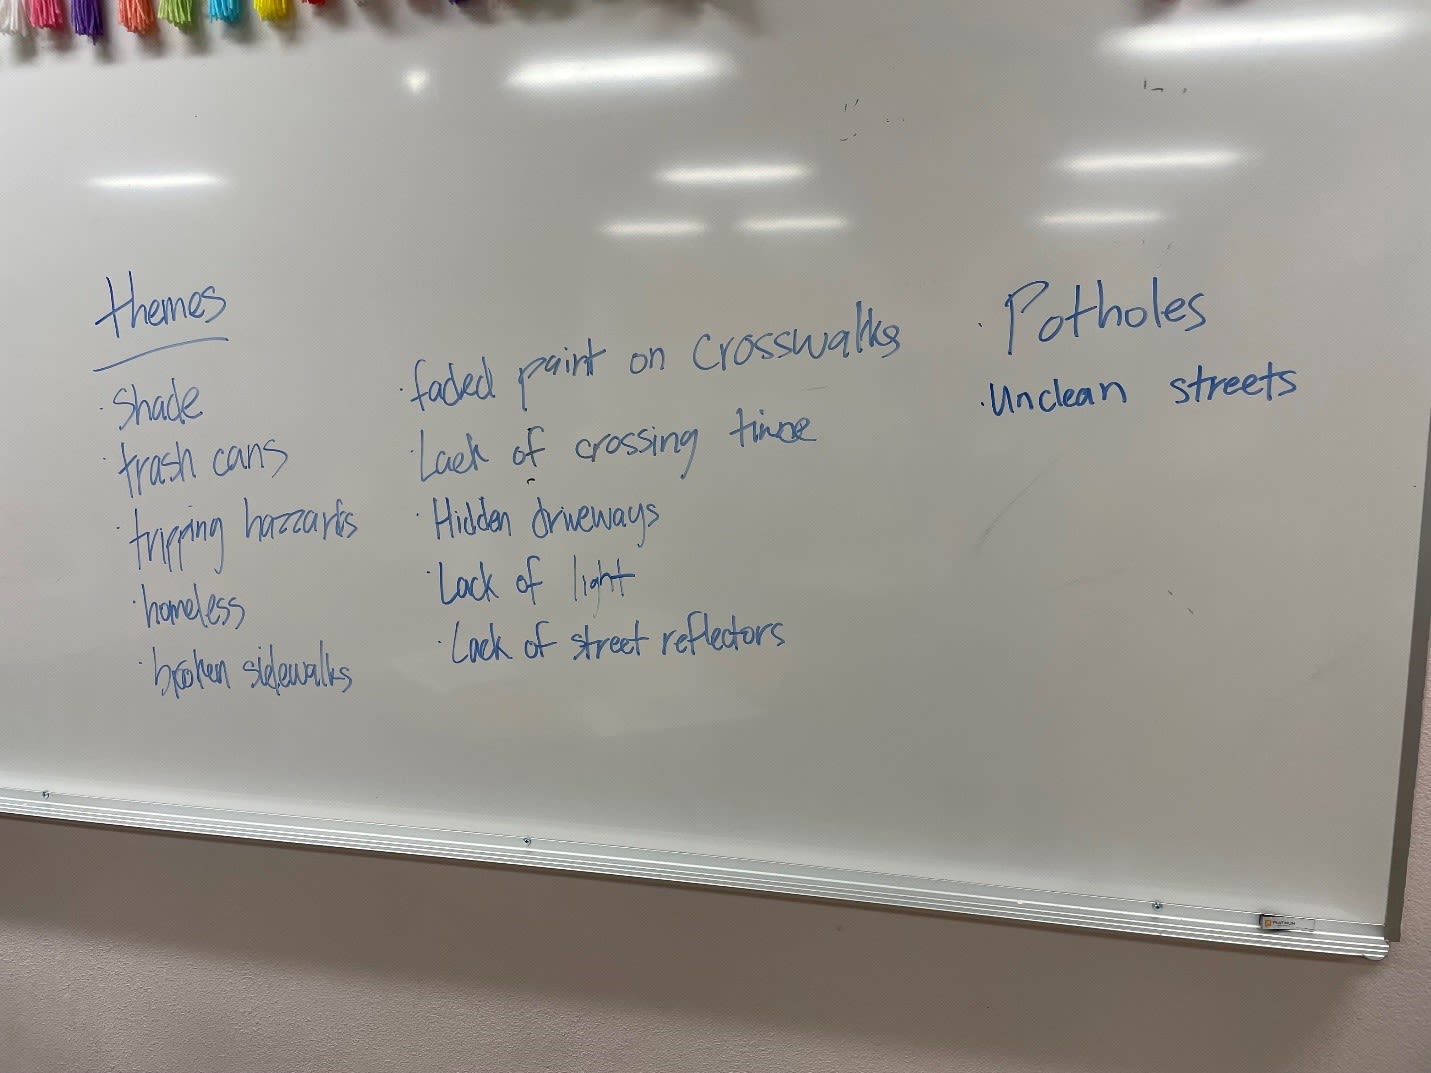 themes
· Shade
· trash cans
· tripping hazzards
· homeless
· broken sidewalks
· faded paint on crosswalks
· Lack of crossing time
· Hidden driveways
· Lack of light
· Lack of street reflectors
· Potholes
· Unclean streets